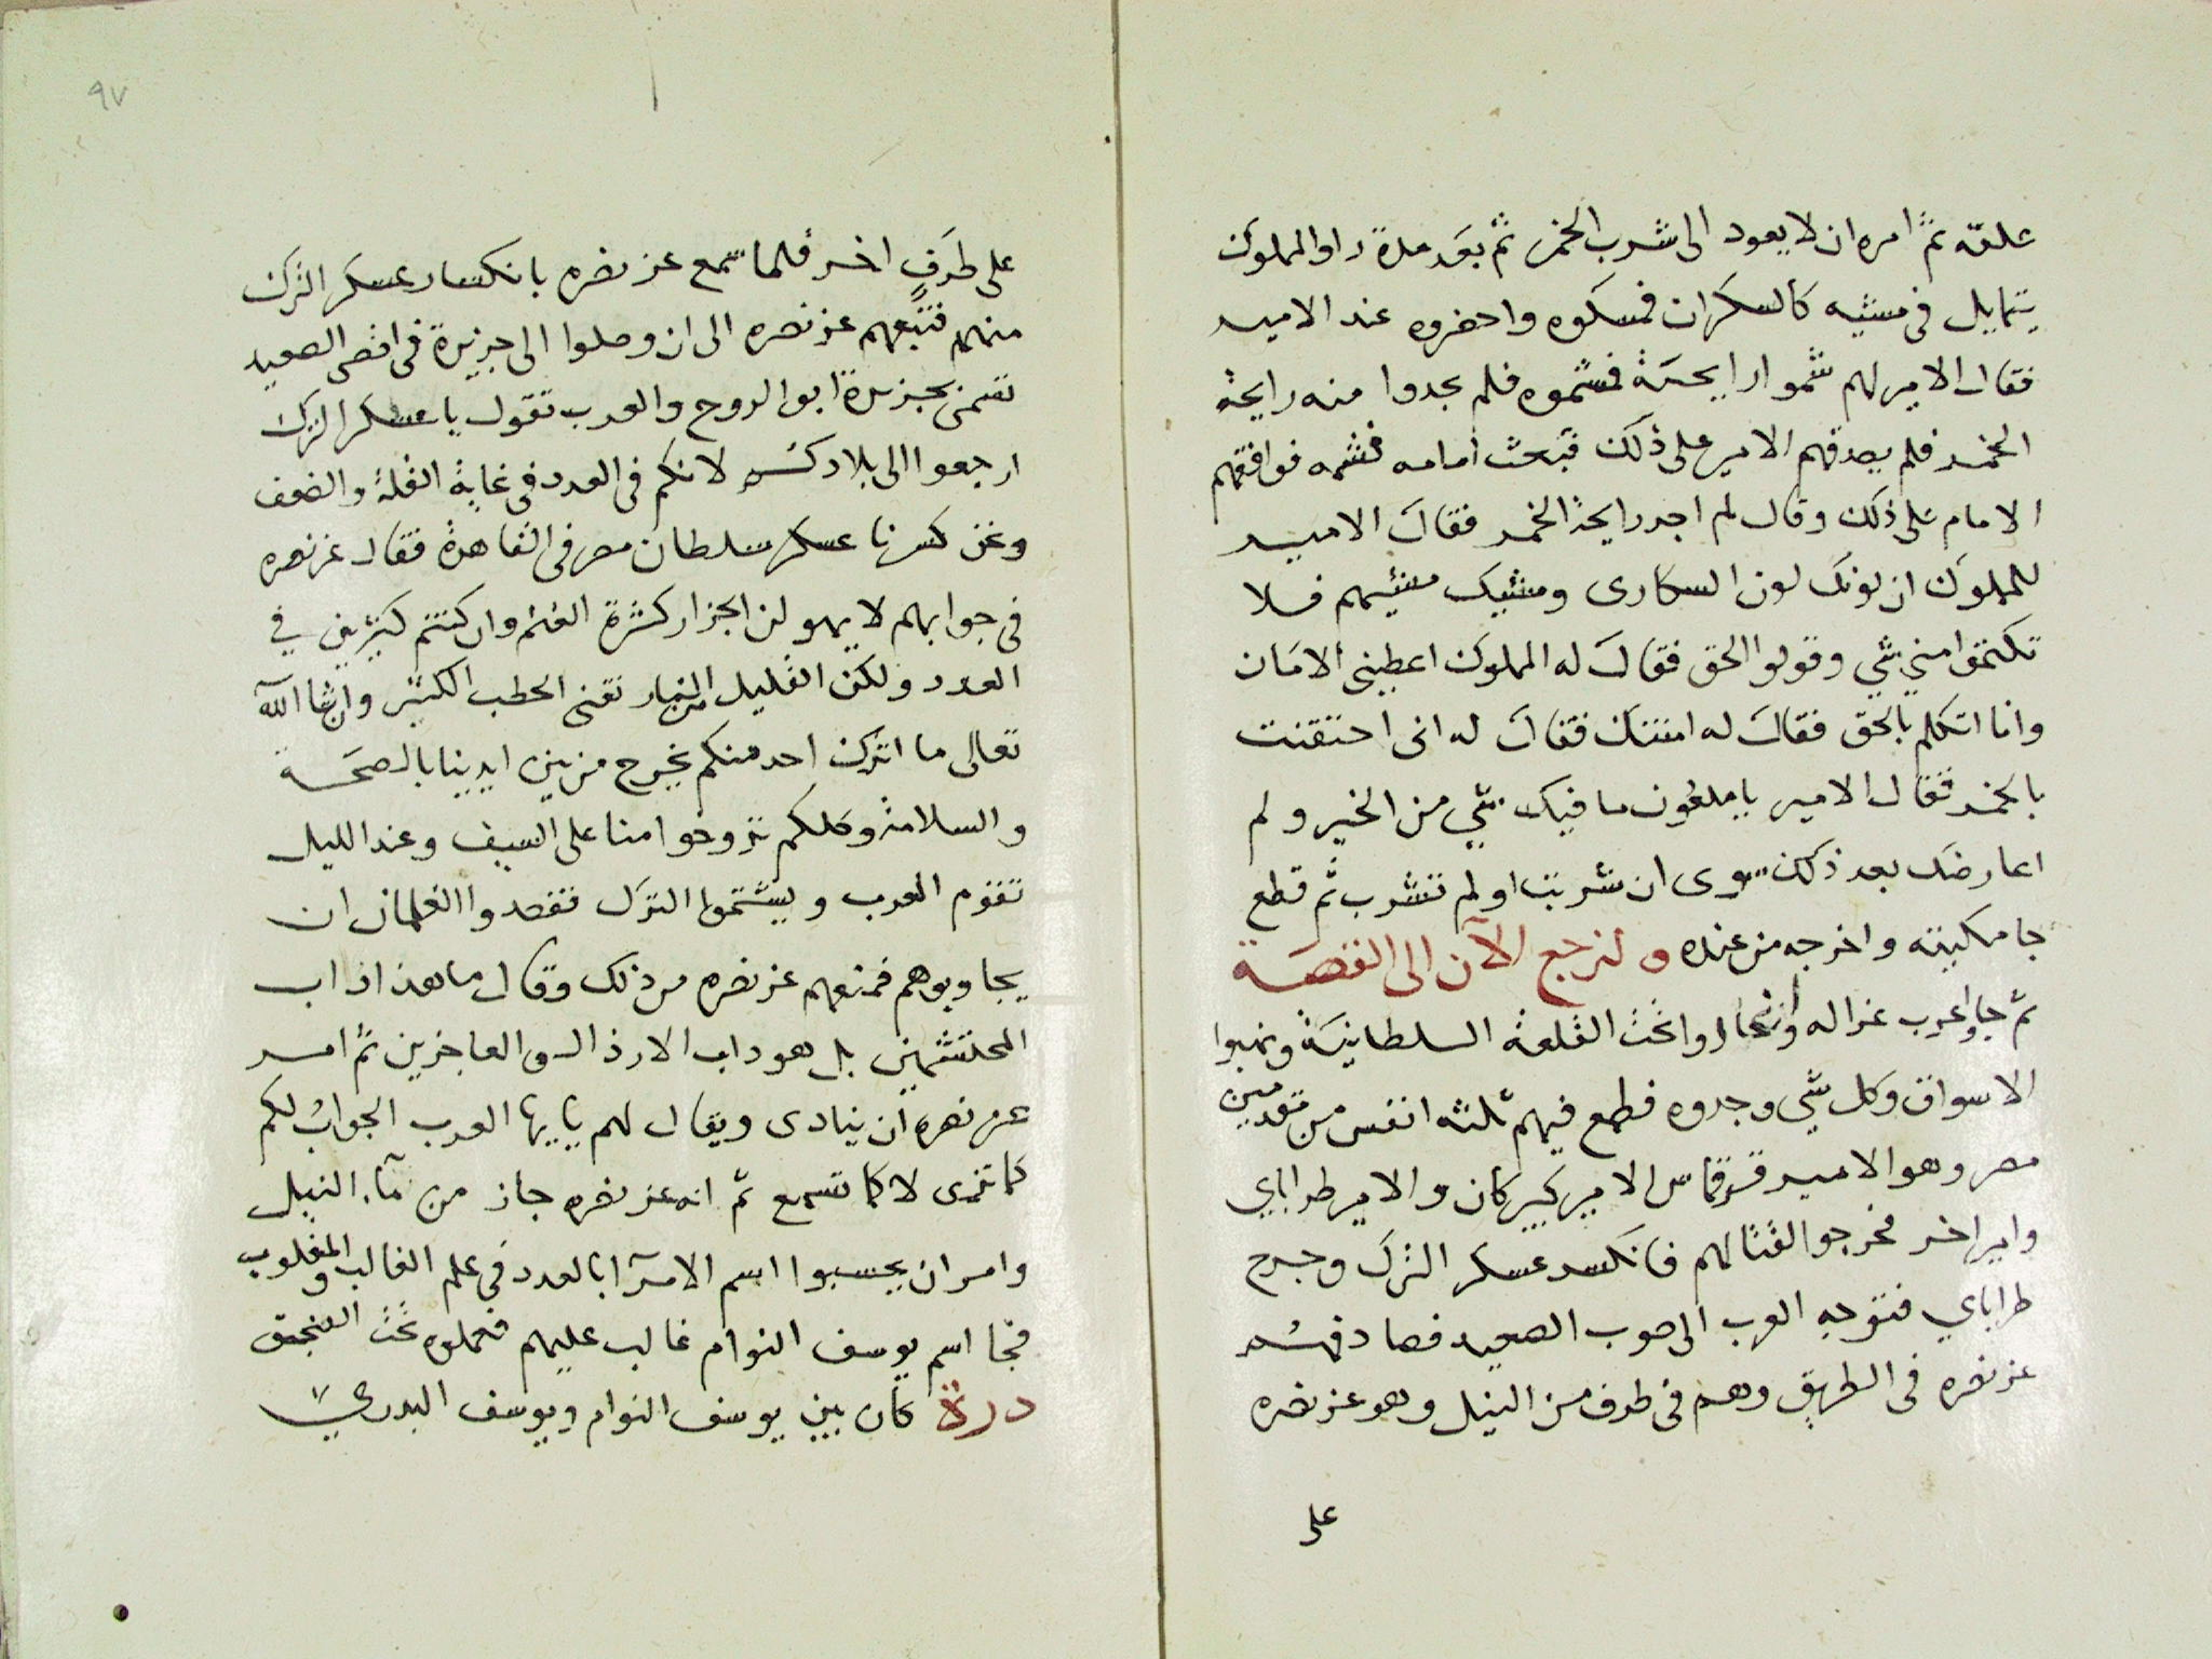 علقه ثم امره ان لا يعود الى شرب الخمر ثم بعد مدة راو المملوك
يتمايل فى مشيه كالسكران فمسكوه واحضروه عند الامير
فقال الامير لهم شموا رايحته فشموه فلم يجدوا منه رايحة
الخمر فلم يصدقهم الامير على ذلك فبعث امامه فشمه فوافقهم
الامام على ذلك وقال لم اجد رايحة الخمر فقال الامير
للمملوك ان لونك لون السكارى ومشيك مشيهم فلا
تكتموا مني شي وقولوا الحق فقال له المملوك اعطينى الامان
وانا اتكلم بالحق فقال له امنتك فقال له انى احتقنت
بالخمر فقال الامير يا ملعون ما فيك شي من الخير ولم
اعارضك بعد ذلك سوى ان شربت او لم تشرب ثم قطع
جامكيته واخرجه من عنده ولنرجع الآن الى القصة
ثم جاوا عرب غزاله وانحازوا تحت القلعة السلطانية ونهبوا
الاسواق وكل شي وجدوه فطمع فيهم ثلثه انفس من مقدمين
مصر وهو الامير قرقماس الامير كبير كان والامير طراباي
وامير اخر فخرجوا لقتالهم فانكسر عسكر الترك وجرح
طراباي فتوجه العرب الى صوب الصعيد فصادفهم
عز نصره فى الطريق وهم فى طرف من النيل وهو عز نصره
على
٩٧
على طرف اخر فلما سمع عز نصره بانكسار عسكر الترك
منهم فتبعهم عز نصره الى ان وصلوا الى جزيرة فى اقصى الصعيد
تسمى بجزيرة ابو الروح والعرب تقول يا عسكر الترك
ارجعوا الى بلادكم لانكم فى العدد فى غاية القلة والضعف
ونحن كسرنا عسكر سلطان مصر فى القاهرة فقال عز نصره
فى جوابهم لا يهولن الجزار كثرة الغنم وان كنتم كثيرين في
العدد ولكن القليل من النار تفنى الحطب الكثير وان شا الله
تعالى ما اترك احد منكم يخرج من بين ايدينا بالصحة
والسلامة وكلكم تروحوا منا على السيف وعند الليل
تقوم العرب ويشتموا الترك فقصدوا الغلمان ان
يجاوبوهم فمنعهم عز نصره من ذلك وقال ما هذا داب
المحتشمين بل هو داب الارذال والعاجزين ثم امر
عز نصره ان ينادى ويقال لهم يا ايها العرب الجواب لكم
كما ترى لا كما تسمع ثم انه عز نصره جاز من مآء النيل
وامر ان يحسبوا اسم الامرآ بالعدد فى علم الغالب والمغلوب
فجا اسم يوسف النوام غالب عليهم فجعلوه تحت السنجق
درة كان بين يوسف النوام ويوسف البدري